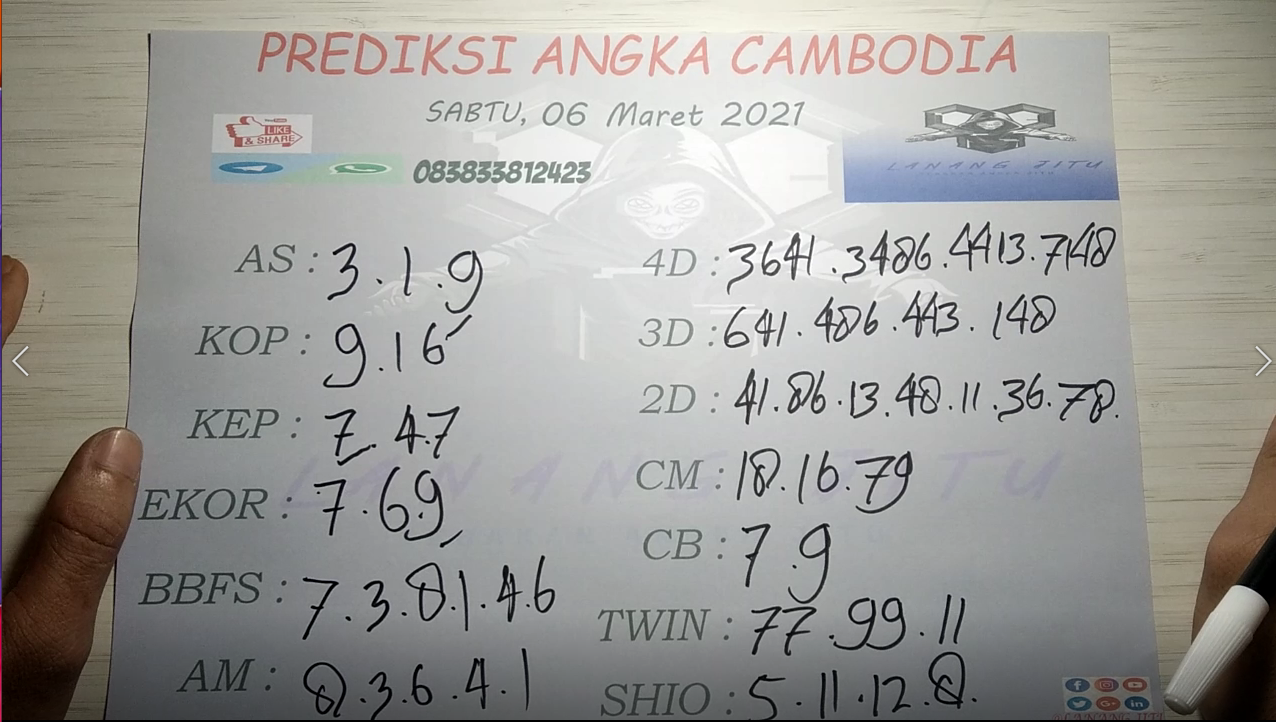 PREDIKSI ANGKA CAMBODIA
SABTU, 06 Maret 2021
LIKE
& SHARE
083833812423
LANANG JITU
AS : 3.1.9
KOP : 9.16
KEP : 7.4.7
EKOR : 7.69
BBFS : 7.3.8.1.4.6
AM : 8.3.6.4.1
4D : 3641.3486.4413.7148
3D : 641.486.443.148
2D : 41.86.13.48.11.36.78.
CM : 18.16.79
CB : 7.9
TWIN : 77.99.11
SHIO : 5.11.12.8.
LANANG JITU